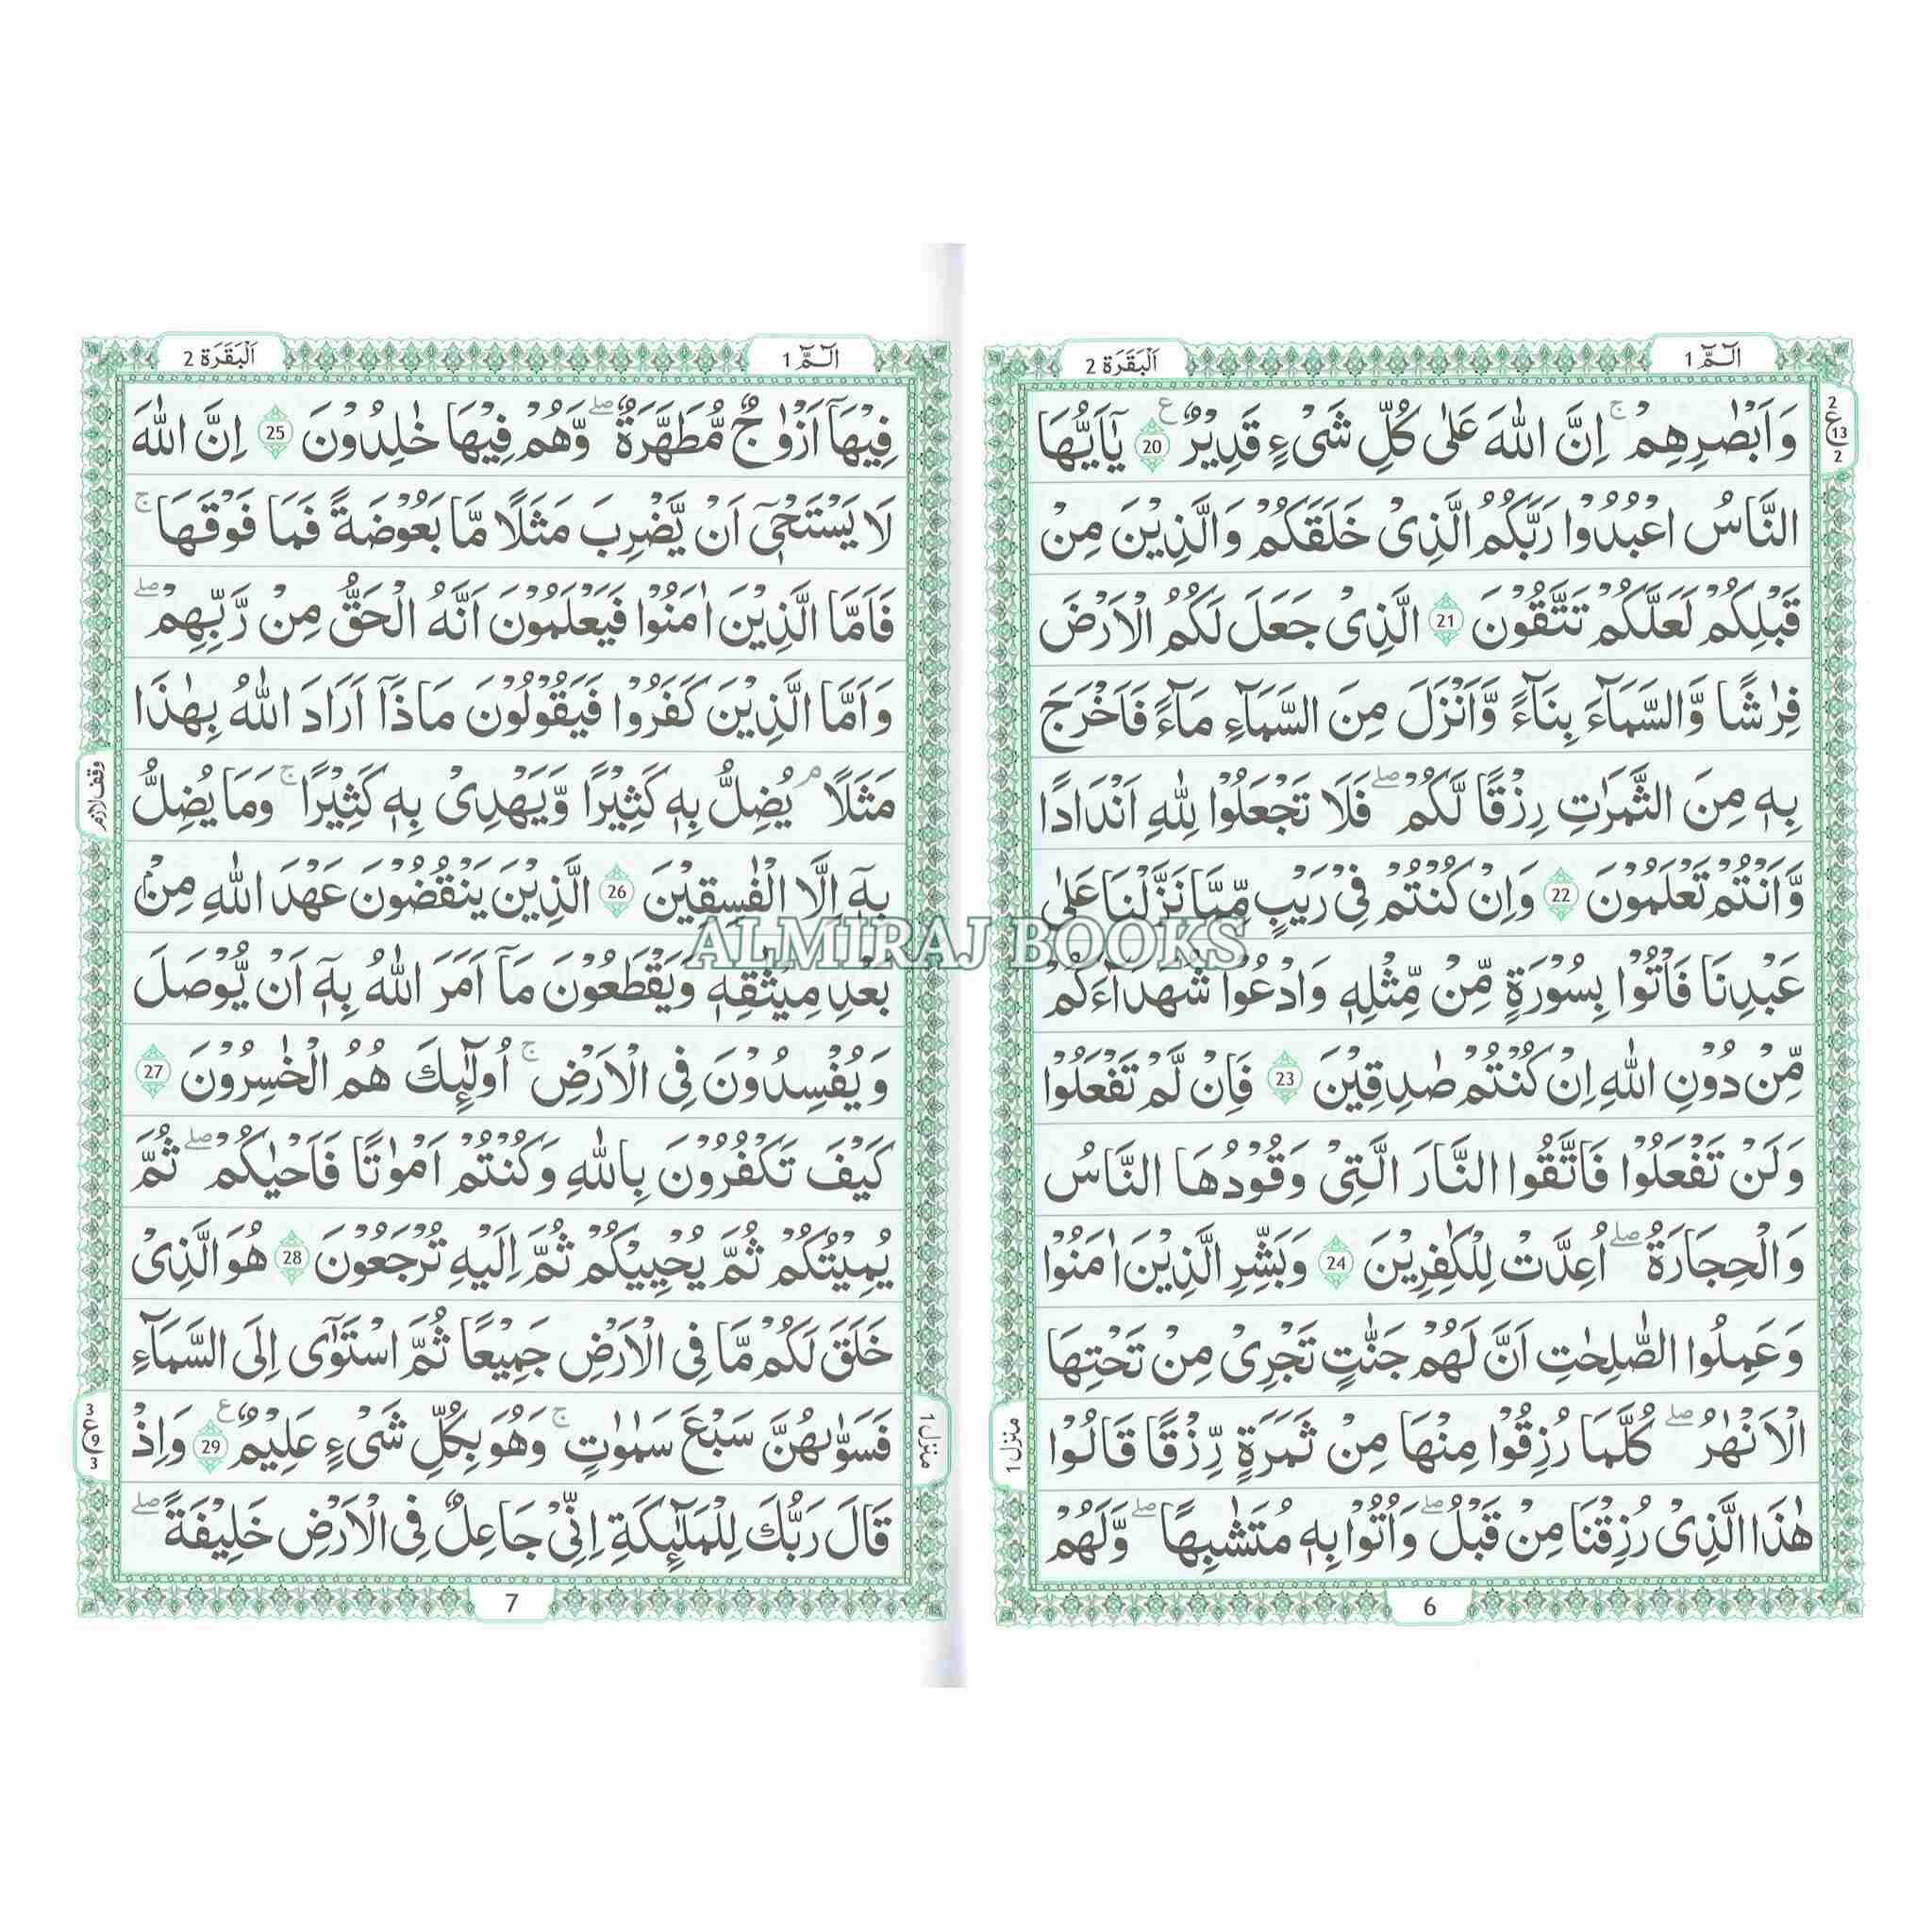 الٓمّٓ 1
اَلْبَقَرَة 2
وَاَبْصٰرِهِمْ ؕ ج اِنَّ اللّٰهَ عَلٰى كُلِّ شَىْءٍ قَدِيْرٌ ع 20 يٰٓاَيُّهَا
النَّاسُ اعْبُدُوْا رَبَّكُمُ الَّذِىْ خَلَقَكُمْ وَالَّذِيْنَ مِنْ
قَبْلِكُمْ لَعَلَّكُمْ تَتَّقُوْنَ 21 الَّذِىْ جَعَلَ لَكُمُ الْاَرْضَ
فِرٰشًا وَّالسَّمَآءَ بِنَآءً وَّاَنْزَلَ مِنَ السَّمَآءِ مَآءً فَاَخْرَجَ
بِهٖ مِنَ الثَّمَرٰتِ رِزْقًا لَّكُمْ ۖ فَلَا تَجْعَلُوْا لِلّٰهِ اَنْدَادًا
وَّاَنْتُمْ تَعْلَمُوْنَ 22 وَاِنْ كُنْتُمْ فِىْ رَيْبٍ مِّمَّا نَزَّلْنَا عَلٰى
عَبْدِنَا فَاْتُوْا بِسُوْرَةٍ مِّنْ مِّثْلِهٖ وَادْعُوْا شُهَدَآءَكُمْ
مِّنْ دُوْنِ اللّٰهِ اِنْ كُنْتُمْ صٰدِقِيْنَ 23 فَاِنْ لَّمْ تَفْعَلُوْا
وَلَنْ تَفْعَلُوْا فَاتَّقُوا النَّارَ الَّتِىْ وَقُوْدُهَا النَّاسُ
وَالْحِجَارَةُ ۖ اُعِدَّتْ لِلْكٰفِرِيْنَ 24 وَبَشِّرِ الَّذِيْنَ اٰمَنُوْا
وَعَمِلُوا الصّٰلِحٰتِ اَنَّ لَهُمْ جَنّٰتٍ تَجْرِىْ مِنْ تَحْتِهَا
الْاَنْهٰرُ ۖ كُلَّمَا رُزِقُوْا مِنْهَا مِنْ ثَمَرَةٍ رِّزْقًا قَالُوْا
هٰذَا الَّذِىْ رُزِقْنَا مِنْ قَبْلُ ۖ وَاُتُوْا بِهٖ مُتَشٰبِهًا ۖ وَّلَهُمْ
2
ع
13
2
منزل 1
6
الٓمّٓ 1
اَلْبَقَرَة 2
فِيْهَآ اَزْوٰجٌ مُّطَهَّرَةٌ ۖ وَّهُمْ فِيْهَا خٰلِدُوْنَ 25 اِنَّ اللّٰهَ
لَا يَسْتَحْىٖٓ اَنْ يَّضْرِبَ مَثَلًا مَّا بَعُوْضَةً فَمَا فَوْقَهَا ۚ
فَاَمَّا الَّذِيْنَ اٰمَنُوْا فَيَعْلَمُوْنَ اَنَّهُ الْحَقُّ مِنْ رَّبِّهِمْ ۖ
وَاَمَّا الَّذِيْنَ كَفَرُوْا فَيَقُوْلُوْنَ مَاذَآ اَرَادَ اللّٰهُ بِهٰذَا
مَثَلًا ۘ يُضِلُّ بِهٖ كَثِيْرًا وَّيَهْدِىْ بِهٖ كَثِيْرًا ۚ وَمَا يُضِلُّ
بِهٖٓ اِلَّا الْفٰسِقِيْنَ 26 الَّذِيْنَ يَنْقُضُوْنَ عَهْدَ اللّٰهِ مِنْۢ
بَعْدِ مِيْثٰقِهٖ وَيَقْطَعُوْنَ مَآ اَمَرَ اللّٰهُ بِهٖٓ اَنْ يُّوْصَلَ
وَيُفْسِدُوْنَ فِى الْاَرْضِ ۚ اُولٰٓئِكَ هُمُ الْخٰسِرُوْنَ 27
كَيْفَ تَكْفُرُوْنَ بِاللّٰهِ وَكُنْتُمْ اَمْوٰتًا فَاَحْيٰكُمْ ۖ ثُمَّ
يُمِيْتُكُمْ ثُمَّ يُحْيِيْكُمْ ثُمَّ اِلَيْهِ تُرْجَعُوْنَ 28 هُوَ الَّذِىْ
خَلَقَ لَكُمْ مَّا فِى الْاَرْضِ جَمِيْعًا ثُمَّ اسْتَوٰٓى اِلَى السَّمَآءِ
فَسَوّٰىهُنَّ سَبْعَ سَمٰوٰتٍ ۚ وَهُوَ بِكُلِّ شَىْءٍ عَلِيْمٌ ع 29 وَاِذْ
قَالَ رَبُّكَ لِلْمَلٰٓئِكَةِ اِنِّىْ جَاعِلٌ فِى الْاَرْضِ خَلِيْفَةً ۖ
وقف لازم
3
ع
9
3
منزل 1
7
ALMIRAJ BOOKS